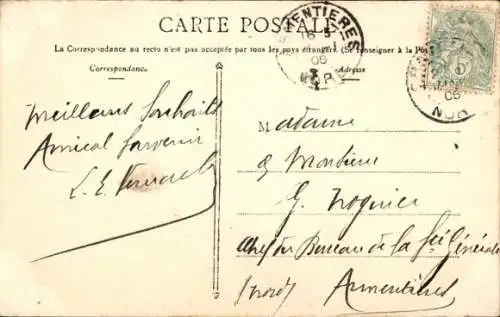 CARTE POSTALE
ARMENTIÈRES
16-5
06
NORD
La Correspondance au recto n'est pas acceptée par tous les pays étrangers (Se renseigner à la Pos
Correspondance
Adresse
5
06
NOR
Meilleurs Souhaits
Amical Souvenir
L. E.
Madame
& Monsieur
G.
Chef du Bureau de la Sté Générale
(Nord) Armentières